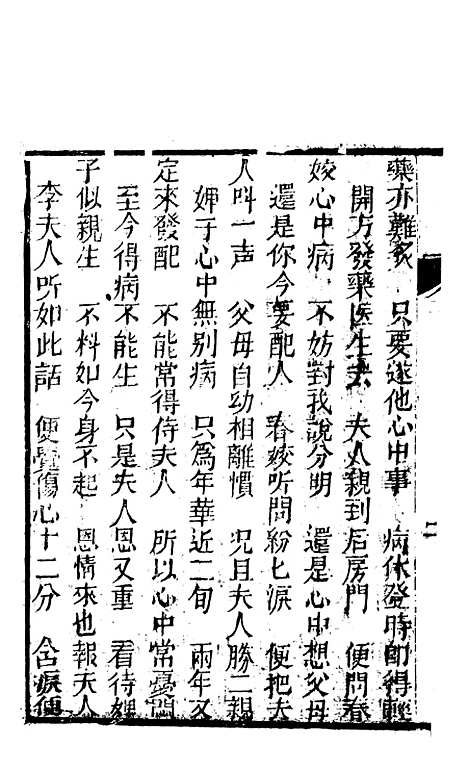 藥亦難炙　只要遂他心中事　病休登時即得輕
開方發藥医生去　夫人親到后房門　便問春
姣心中病　不妨對我說分明　還是心中想父母
還是你今要配人　春姣听問紛匕淚　便把夫
人叫一声　父母自幼相離慣　况且夫人勝二親
婢子心中無别病　只爲年華近二旬　兩年又
定來發配　不能常得侍夫人　所以心中常憂悶
至今得病不能生　只是夫人恩又重　看待
子似親生　不料如今身不起　恩情來也報夫人
李夫人听如此話　便覺傷心十二分　含淚便